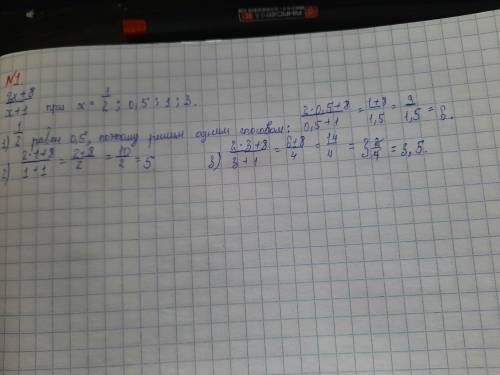 №1
2x+8/x+1 при x = 1/2 ; 0,5 ; 1 ; 3.
1) 1/2 равен 0,5, поэтому решим одним способом: 2·0,5+8/0,5+1 = 1+8/1,5 = 9/1,5 = 6.
2) 2·1+8/1+1 = 2+8/2 = 10/2 = 5 3) 2·3+8/3+1 = 6+8/4 = 14/4 = 3 2/4 = 3,5.